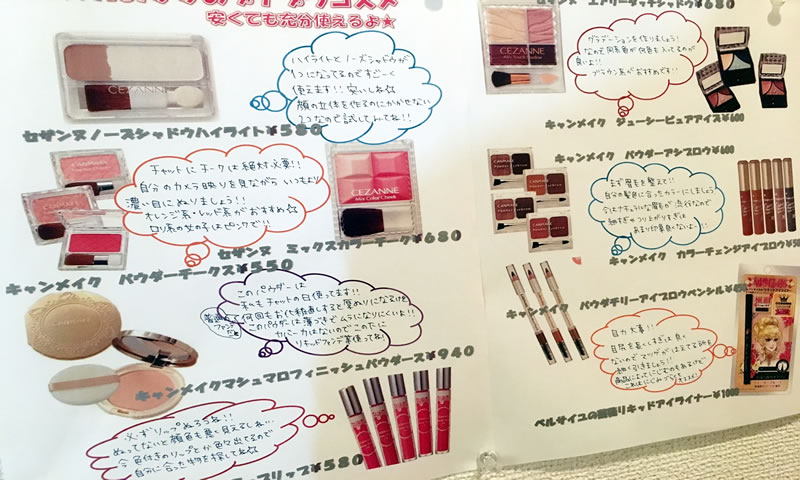 安くても充分使えるよ★
CEZANNE
ハイライトと ノーズシャドウが
1つになってるのですごーく
使えます!! 安いしね☆
顔の立体を作るのにかかせない
2つなので試してみてね!!
セザンヌノーズシャドウハイライト¥580
チャットにチークは絶対必要!!
自分のカメラ映りを見ながら いつもより
濃い目にぬりましょう!!
オレンジ系・レッド系がおすすめ☆
ロリ系の女の子はピンクで!!
CEZANNE
Mix Color Cheek
セザンヌ ミックスカラーチーク¥680
キャンメイク パウダーチークス¥550
このパウダーは
こちらもチャットの日使ってます!!
このパウダーは薄づきでムラになりにくいよ!!
カバー力はないのでこの下に
リキッドファンデ等使ってね!
キャンメイクマシュマロフィニッシュパウダース¥940
必ずリップぬろうね!!
ぬってないと顔色も悪く見えるしね…
今色付きのリップとか色々出てるので
自分に合った物を探してね☆
リップ¥580
セザンヌ エアリータッチシャドウ¥680
CEZANNE
グラデーションを作りましょう!
なので同系色が何色も入ってるのが
良いよ!!
ブラウン系がおすすめです!!
キャンメイク ジューシーピュアアイズ¥600
キャンメイク パウダーアシブロウ¥600
まず眉毛を整えて!!
自分の髪色に合ったカラーにしましょう
今はナチュラルな眉が流行なので
細すぎやつり上がりすぎは
あまり印象良くないよー!!
キャンメイク カラーチェンジアイブロウ
キャンメイク パウダリーアイブロウペンシル
目力大事!!
目尻を長くしすぎは良く
ないので マツゲがはえてる所を
細く引きましょう!!
商品によってにじむのもあるけど
ベルサイユの薔薇リキッドアイライナー¥1000